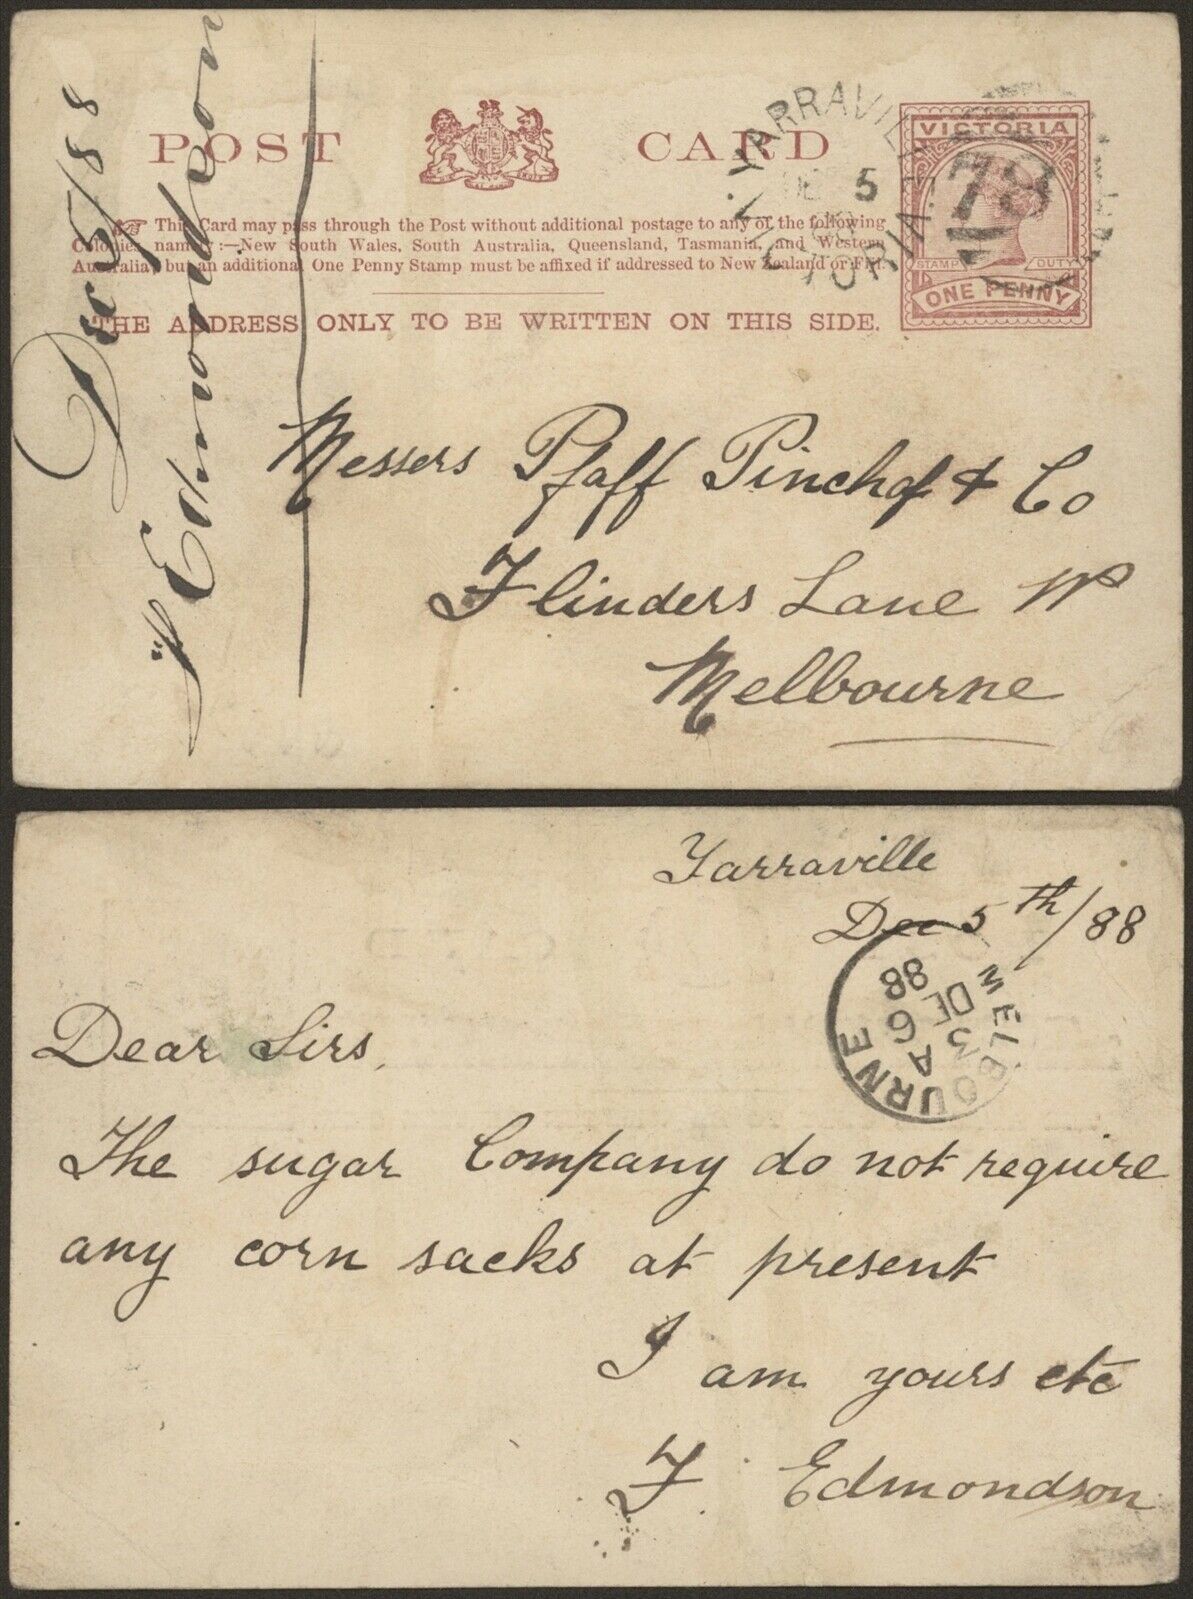 POST CARD
This Card may pass through the Post without additional postage to any of the following
Colonies, namely:—New South Wales, South Australia, Queensland, Tasmania, and Western
Australia, but an additional One Penny Stamp must be affixed if addressed to New Zealand or Fiji.
THE ADDRESS ONLY TO BE WRITTEN ON THIS SIDE.
YARRAVILLE
DE 5
88
VICTORIA
VICTORIA
78
STAMP DUTY
ONE PENNY
Dec 5/88
F Edmondson
Messers Pfaff Pinchof & Co
Flinders Lane W
Melbourne
Yarraville
Dec 5th/88
MELBOURNE
3 A
DE 6
88
Dear Sirs,
The sugar Company do not require
any corn sacks at present
I am yours etc
F. Edmondson